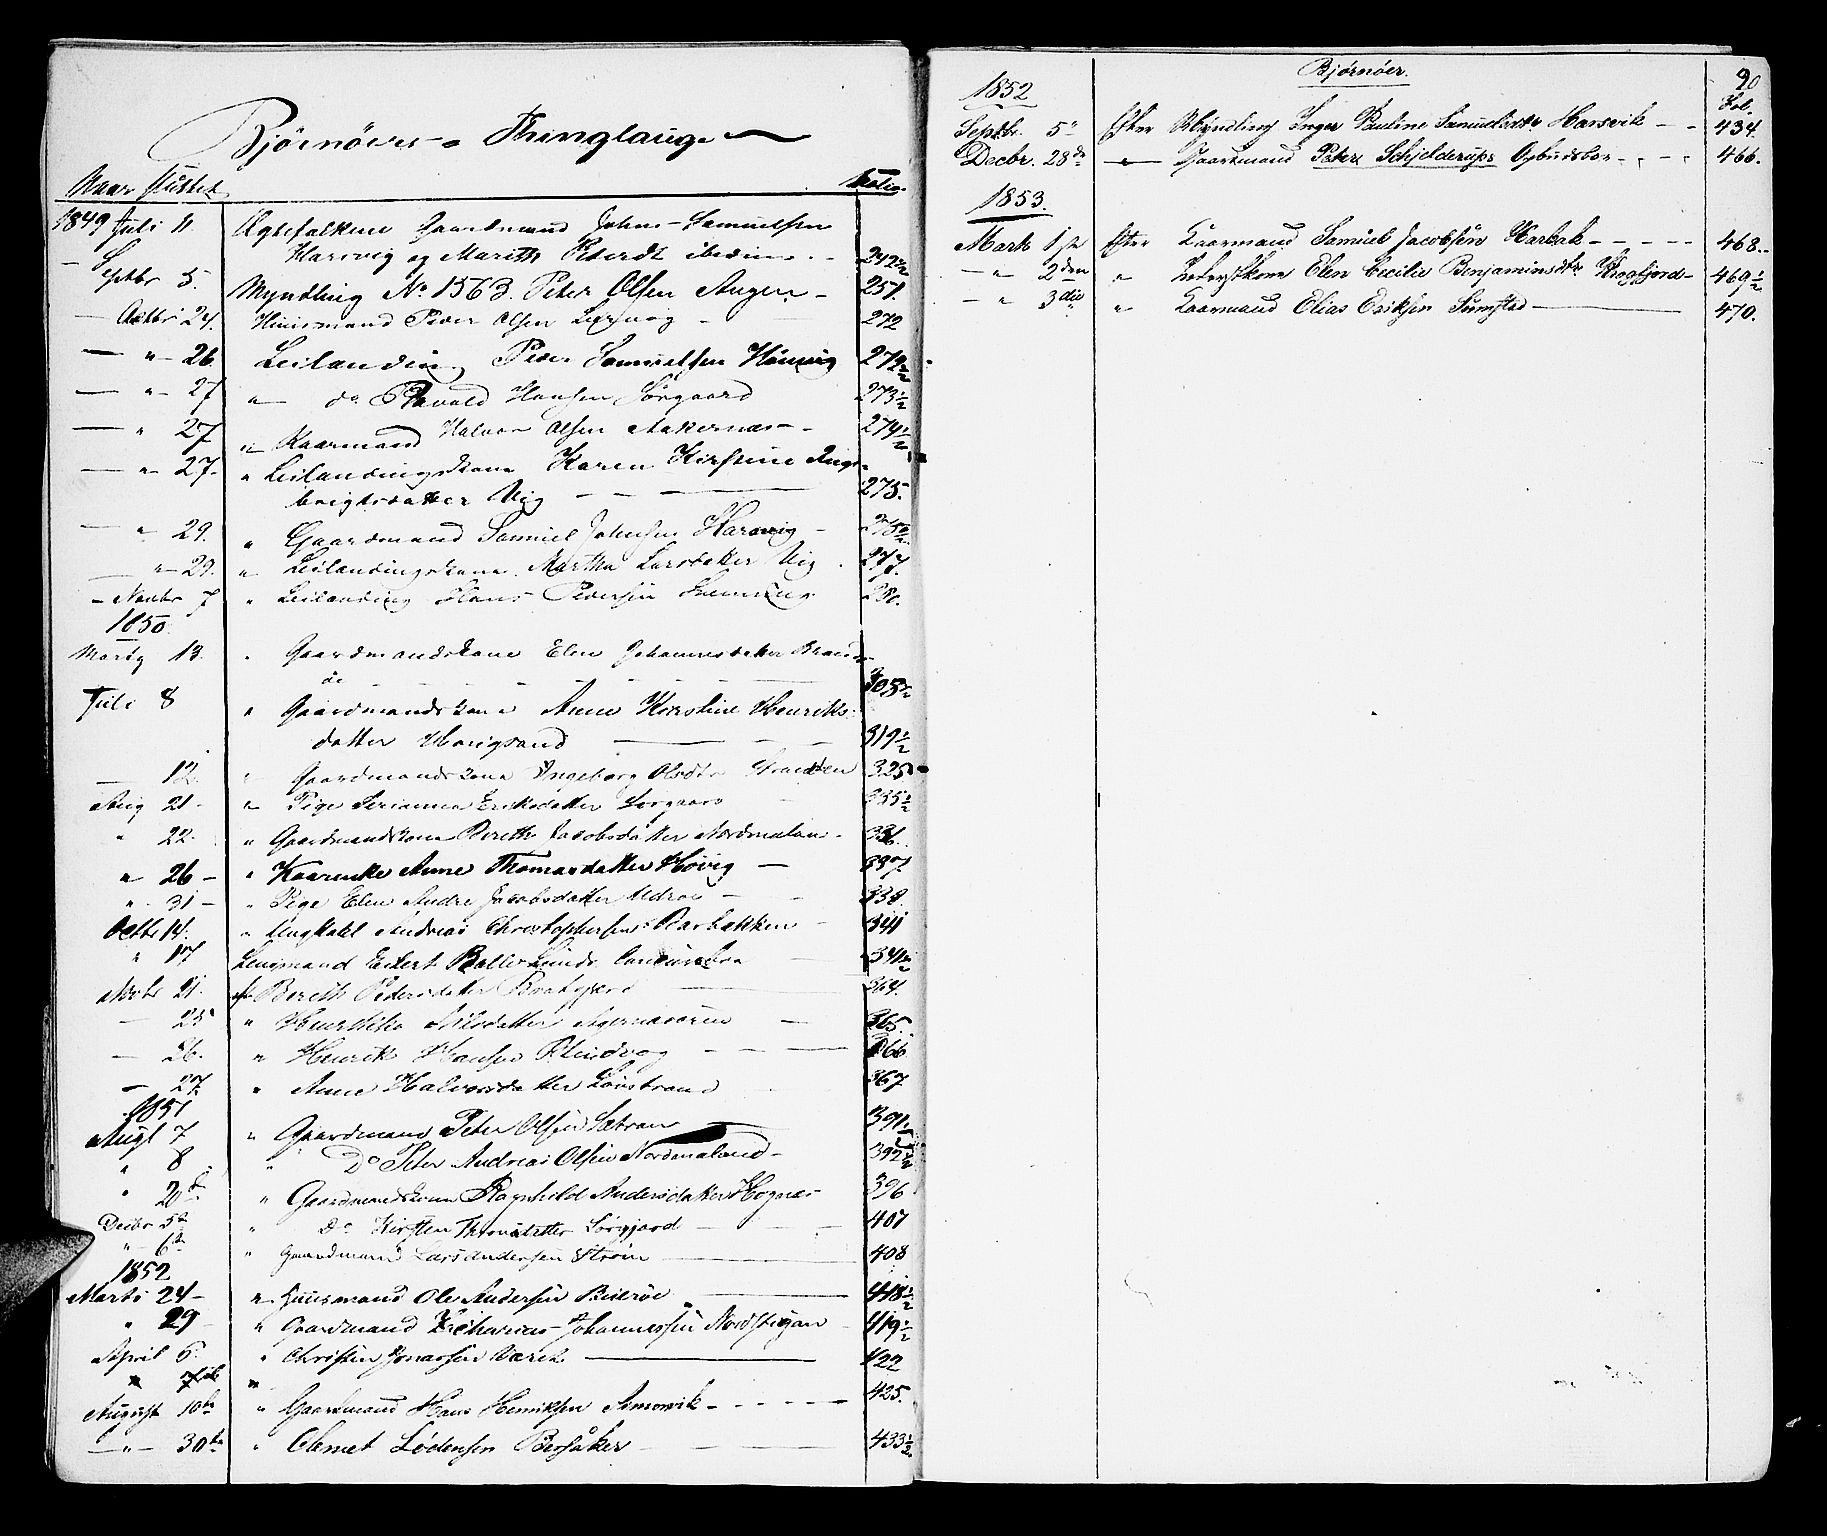 Bjørnøers Thinglauge
Naar sluttet Folio
1849 Juli 11 Ægtefolkene Gaardmand Johns Samuelsen
Harsvig og Marith Pedersdt ibidem 242½
Septbr 5. Myndling No 1563. Peter Olsen 251.
Octbr 24. Huusmand Peder Olsen 272
— " — 26 Leilænding Peder Samuelsen 272½
— " — 27 " do Hansen Sørgaard 273½
— " 27 " Kaarmand Halvor Olsen Aakernæs 274½
— " — 27. " Leilændingskone Karen Kirstine Inge-
brigtsdatter Vig 275.
" 29. " Gaardmand Samuel Johnsen Harsvig 275½
" — 29. " Leilændingskone Martha Larsdatter Vig 277.
— Novbr 7 " Leilænding Hans Pedersen 280.
1850
Martz 13. " Gaardmandskone Elen Johannesdatter
305½
Juli 8 " Gaardmandskone Anne Kirstine Henriks-
datter 319½
— 12. " Gaardmandskone Ingeborg Olsdtr 325
Aug 21. " Pige Serianna Eriksdatter Sørgaard 335½
" 22. " Gaardmandskone Bereth Jacobsdatter Nordmalan 336.
" 26 — " Kaarenke Anne Thomasdatter Høvig 337.
" 31 — " Pige Elen Andre Jacobsdatter 338.
Octbr 14. " Ungkarl Andreas Christophersen Barbakken 341
" 17 Lensmand Lunds 341½
Novbr 21. Bereth Pedersdatter 364.
— 25 " Nilsdatter 365.
— 26. " Henrik Hansen 366
— 27 " Anne Halvorsdatter 367
1851
Augt 7 " Gaardmand Peter Olsen Sætran 391½
" 8 " Do Peter Andreas Olsen Nordmaland 392½
" 20de " Gaardmandskone Ragnhild Andersdatter Hognæs 396
Decbr 5te " Do Kirsten Sørgjord 407
" 6te " Gaardmand Lars Andersen Strøm 408
1852
Marts 24 — " Huusmand Ole Andersen 418½
" 29 " Gaardmand Zacharias Johannessen 419½
April 6. " Christen Jonassen 422
" 7de "
August 10de " Gaardmand Hans Henriksen 425.
— " — 30te " Clemet Lødensen Bersaker 433½
Bjørnöer. 90
1852 Fol.
Septbr. 5te Efter Myndling Inger Pauline Samuelsdtr Harsvik 434.
Decbr. 28de " Gaardmand Peter Schjelderups Opbudsbo 466.
1853.
Marts 1ste Efter Kaarmand Samuel Jacobsen Harbak 468.
— " 2den " Elen Cecilie Benjaminsdtr 469½
— " 3die " Kaarmand Elias Eriksen Sumstad 470.